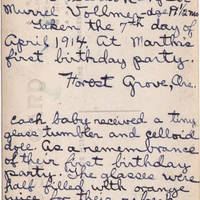 Murrel Vellmy - age
Taken the 7th day of
April 1914. At Martha's
first birthday party.
Forest Grove, Ore.
each baby received a tiny
glass tumbler and celluloid
doll. As a remembrance
of their first birthday
party. The glasses were
half filled with orange
juice for their